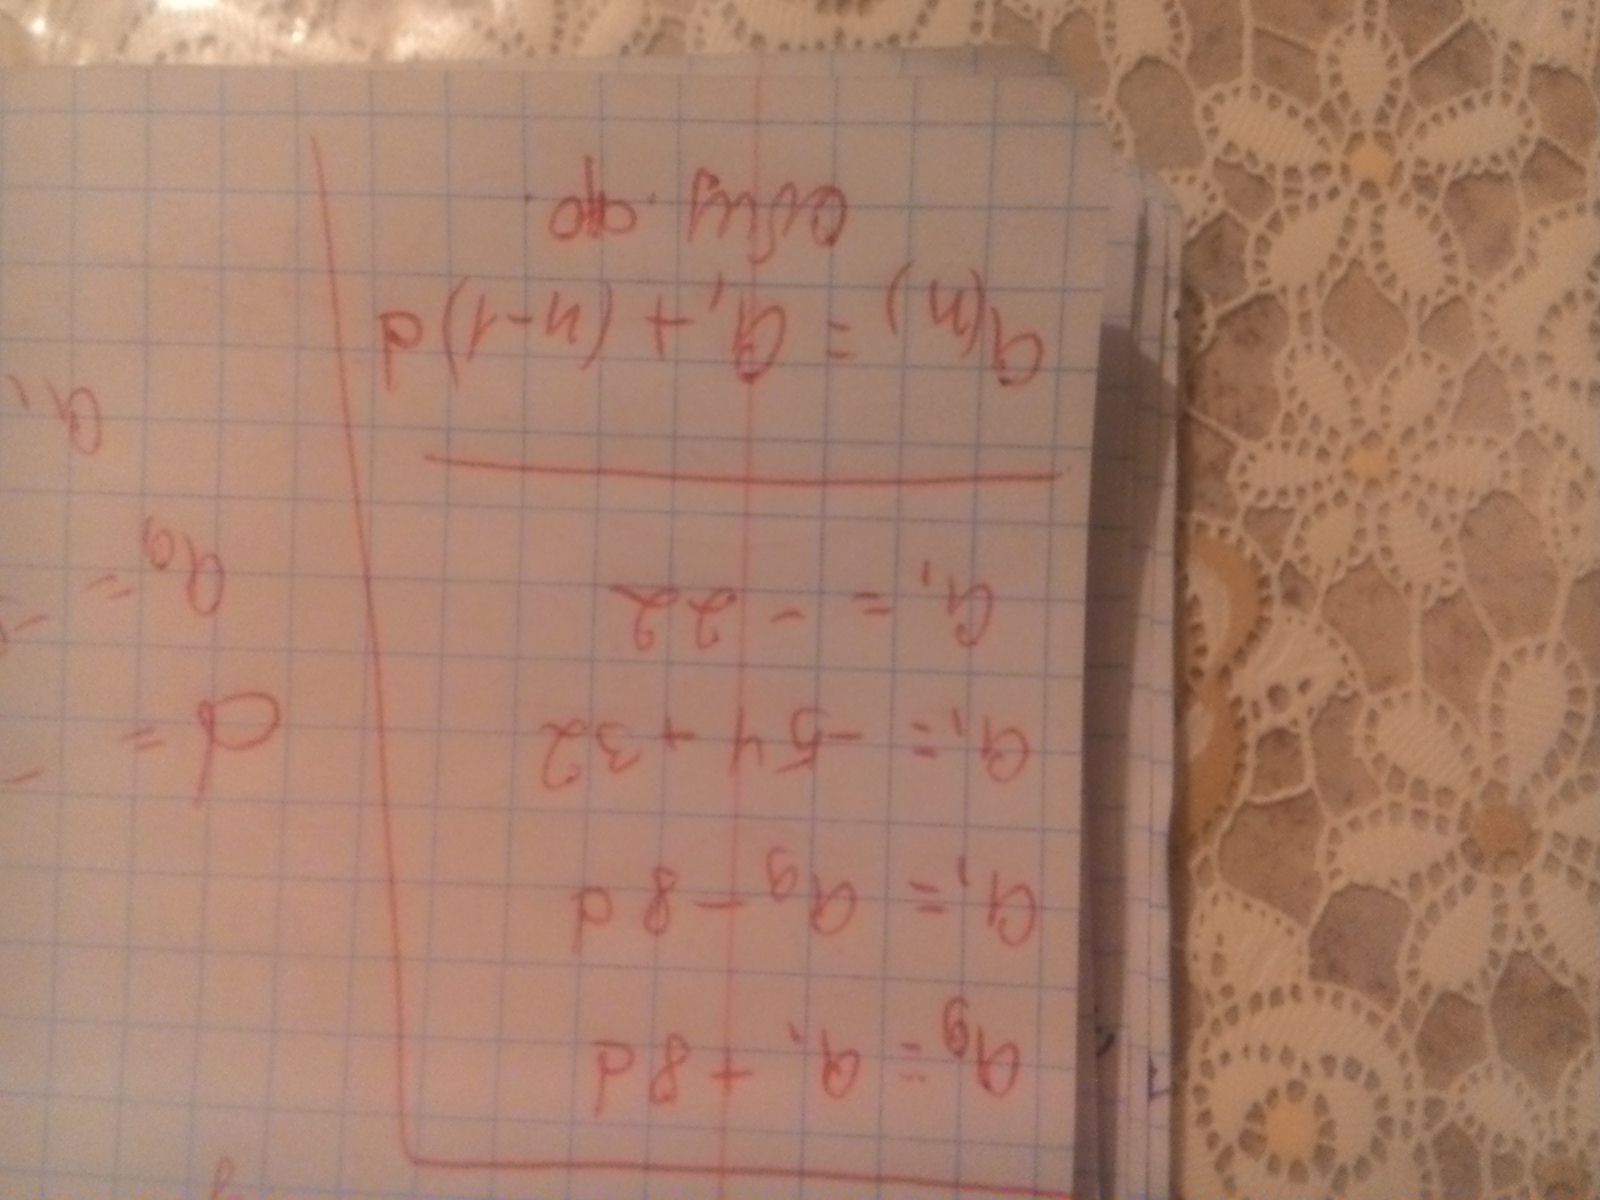 a₉ = a₁ + 8d
a₁ = a₉ - 8d
a₁ = -54 + 32
a₁ = -22
a(n) = a₁ + (n-1)d
d =
a₉ = -
a₁